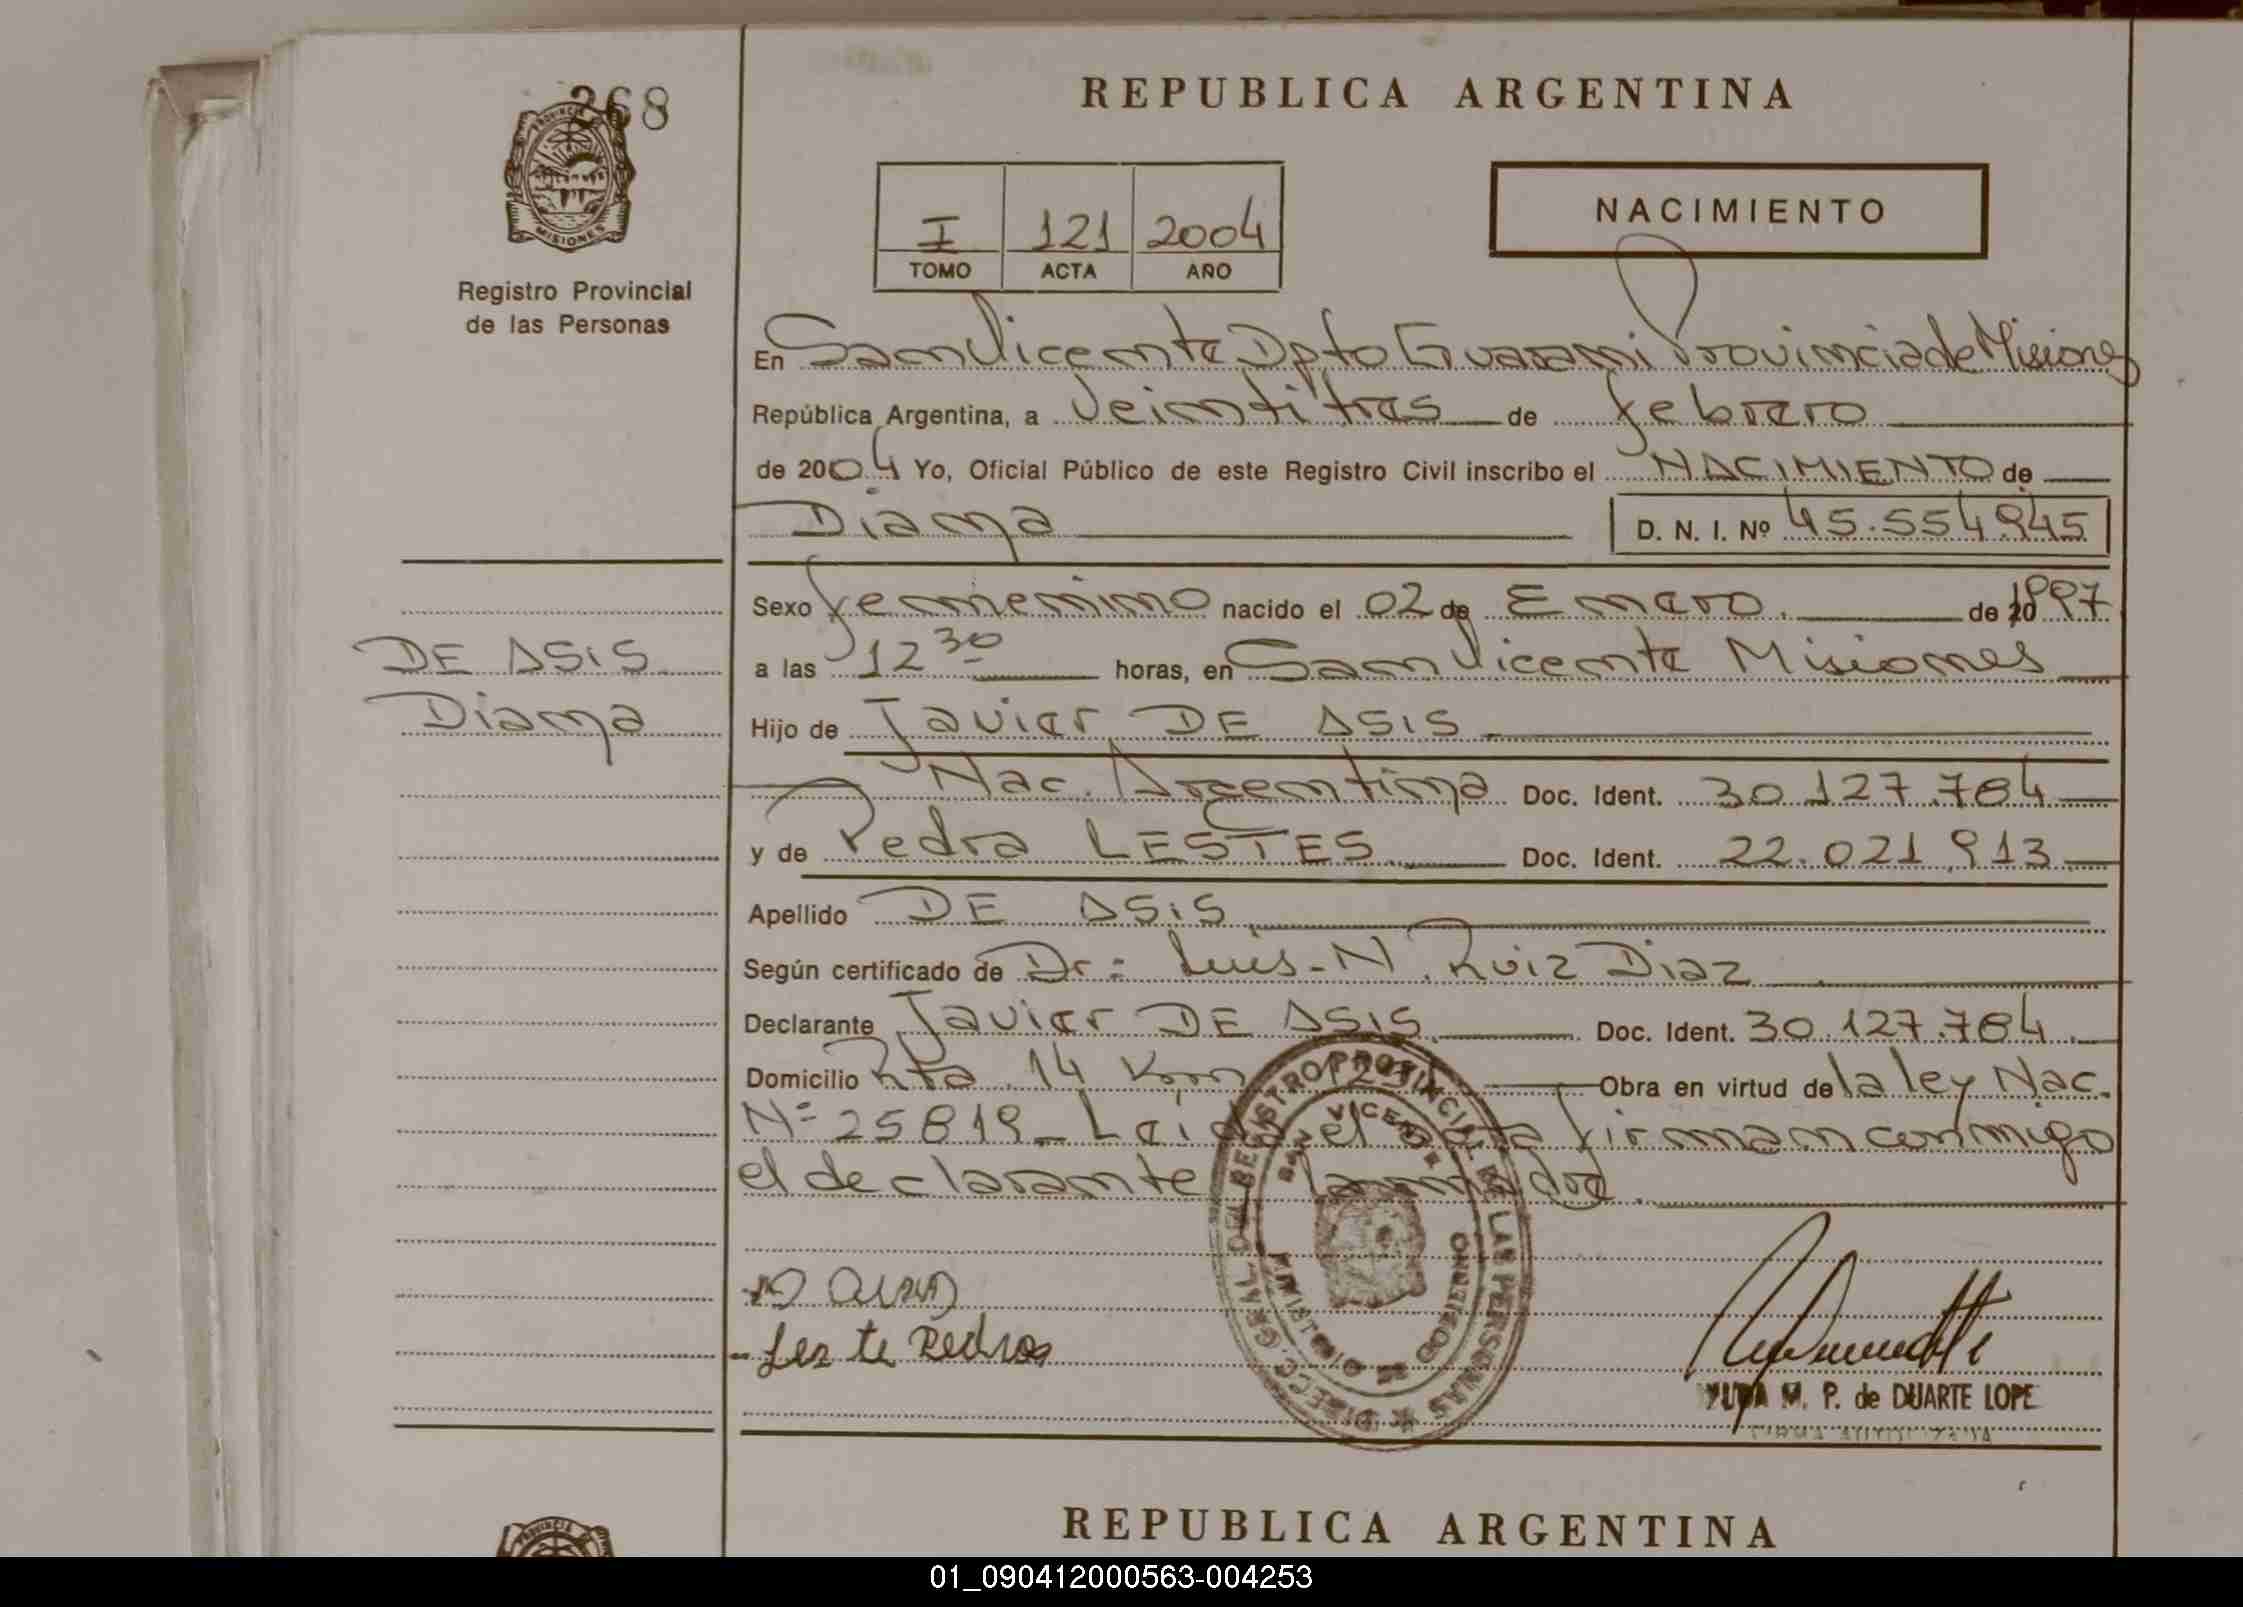 268
PROVINCIA
MISIONES
Registro Provincial
de las Personas
REPUBLICA ARGENTINA
NACIMIENTO
I 121 2004
TOMO ACTA AÑO
En San Vicente Dpto Guarani Provincia de Misiones
República Argentina, a Veintitres de febrero
de 2004 Yo, Oficial Público de este Registro Civil inscribo el NACIMIENTO de
Diana
D. N. I. Nº 45.554.945
Sexo femenino nacido el 02 de Enero de 1997
DE ASIS
a las 12 30 horas, en San Vicente Misiones
Diana
Hijo de Javier DE ASIS
Nac. Argentina Doc. Ident. 30.127.784
y de Pedra LESTES Doc. Ident. 22.021.913
Apellido DE ASIS
Según certificado de Dr: Luis-N. Ruiz Diaz
Declarante Javier DE ASIS Doc. Ident. 30.127.784
Domicilio Rta 14 Km Obra en virtud de la ley Nac.
Nº 25819_ Leida el acta firman conmigo
el declarante la madre.
DIRECC. GRAL. DEL REGISTRO PROVINCIAL DE LAS PERSONAS
SAN VICENTE
MINISTERIO DE GOBIERNO
Leste Pedra
M. P. de DUARTE LOPE
REPUBLICA ARGENTINA
PROVINCIA
01_090412000563-004253